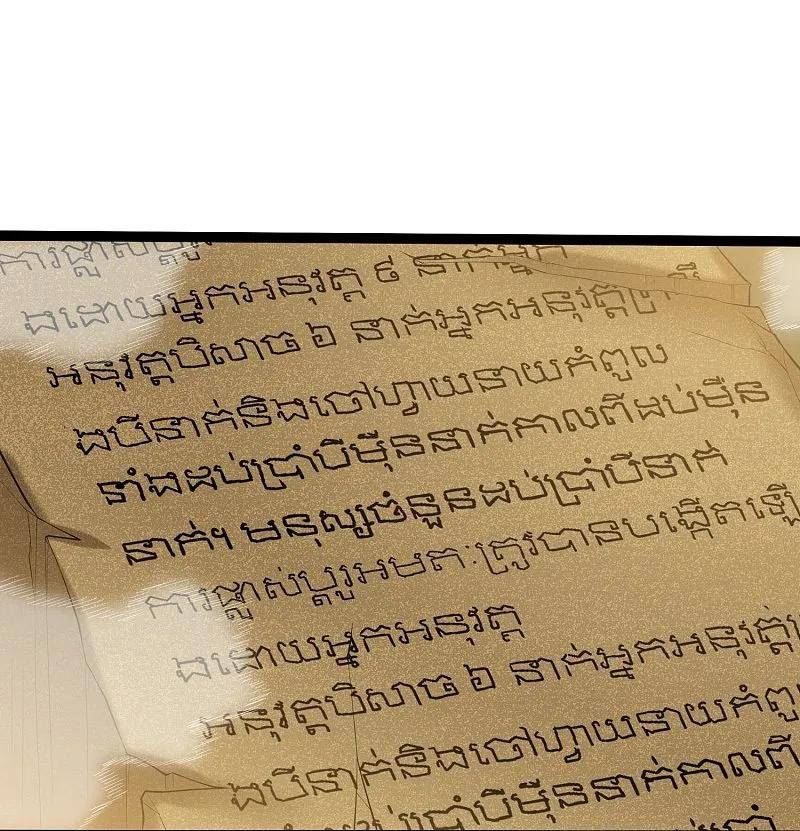 ការផ្លាស់ប្តូរ
ងដោយអ្នកអនុវត្ត ៩ នាក់អ្នក
អនុវត្តបិសាច ៦ នាក់អ្នកអនុវត្ត
ងបីនាក់និងចៅហ្វាយនាយកំពូល
ទាំងដប់ប្រាំបីម៉ឺននាក់កាលពីដប់ម៉ឺន
នាក់។ មនុស្សចំនួនដប់ប្រាំបីនាក់
ការផ្លាស់ប្តូរអមតៈត្រូវបានបង្កើតឡើ
ងដោយអ្នកអនុវត្ត
អនុវត្តបិសាច ៦ នាក់អ្នកអនុវត្ត
ងបីនាក់និងចៅហ្វាយនាយកំពូ
ប្រាំបីម៉ឺននាក់កាលពី